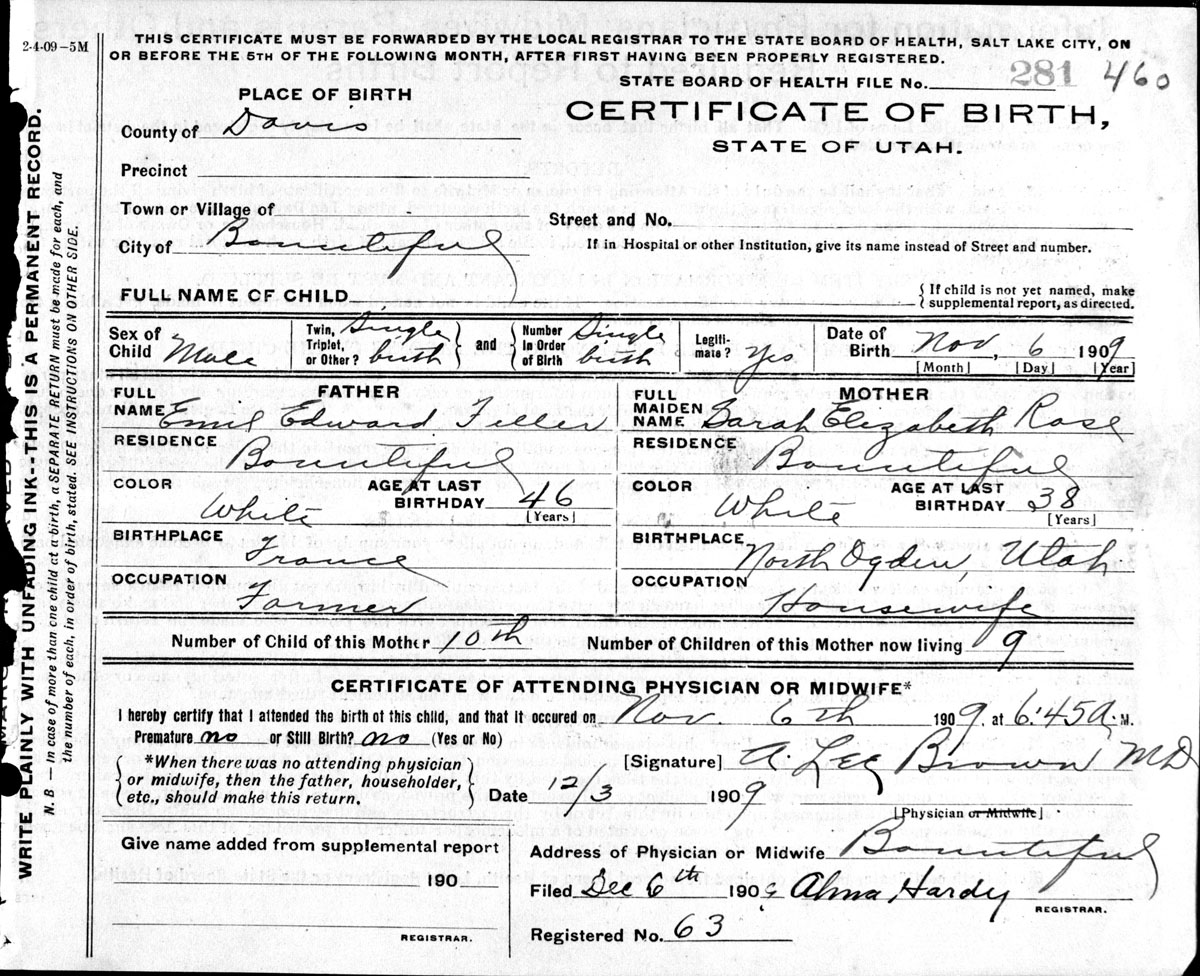 2-4-09-5M
THIS CERTIFICATE MUST BE FORWARDED BY THE LOCAL REGISTRAR TO THE STATE BOARD OF HEALTH, SALT LAKE CITY, ON
OR BEFORE THE 5TH OF THE FOLLOWING MONTH, AFTER FIRST HAVING BEEN PROPERLY REGISTERED.
STATE BOARD OF HEALTH FILE No. 281 460
PLACE OF BIRTH
CERTIFICATE OF BIRTH,
STATE OF UTAH.
County of Davis
Precinct
Town or Village of
Street and No.
City of Bountiful
If in Hospital or other Institution, give its name instead of Street and number.
FULL NAME OF CHILD
{If child is not yet named, make
supplemental report, as directed.
Sex of Child Male
Twin, Triplet, or Other? Single birth
and
Number in Order of Birth Single birth
Legiti-mate? Yes
Date of Birth Nov, 6 1909
[Month] [Day] [Year]
FATHER
FULL NAME Emil Edward Feller
RESIDENCE
Bountiful
COLOR White
AGE AT LAST BIRTHDAY 46
[Years]
BIRTHPLACE
France
OCCUPATION
Farmer
MOTHER
FULL MAIDEN NAME Sarah Elizabeth Rose
RESIDENCE
Bountiful
COLOR White
AGE AT LAST BIRTHDAY 38
[Years]
BIRTHPLACE
North Ogden, Utah
OCCUPATION
Housewife
Number of Child of this Mother 10th
Number of Children of this Mother now living 9
CERTIFICATE OF ATTENDING PHYSICIAN OR MIDWIFE*
I hereby certify that I attended the birth of this child, and that it occured on Nov. 6th 1909, at 6:45 A. M.
Premature no or Still Birth? no (Yes or No)
{*When there was no attending physician
or midwife, then the father, householder,
etc., should make this return.}
[Signature] A Lee Brown, MD
Date 12/3 1909
[Physician or Midwife]
Give name added from supplemental report
190
REGISTRAR.
Address of Physician or Midwife Bountiful
Filed Dec 6th 1909 Alma Hardy
REGISTRAR.
Registered No. 63
WRITE PLAINLY WITH UNFADING INK--THIS IS A PERMANENT RECORD.
N. B — In case of more than one child at a birth, a SEPARATE RETURN must be made for each, and
the number of each, in order of birth, stated. SEE INSTRUCTIONS ON OTHER SIDE.